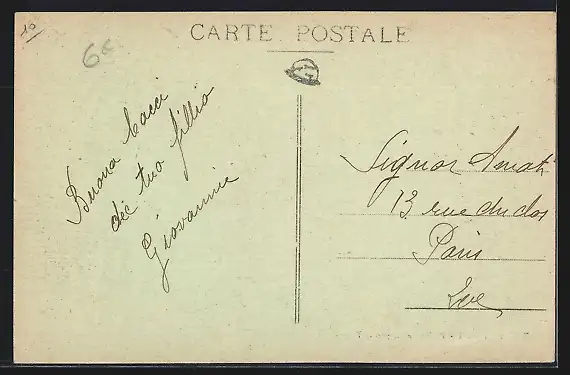 10
6c
CARTE POSTALE
Buona bacci
dec tuo fillio
Giovannie
Signor Amati
13 rue du clos
Paris